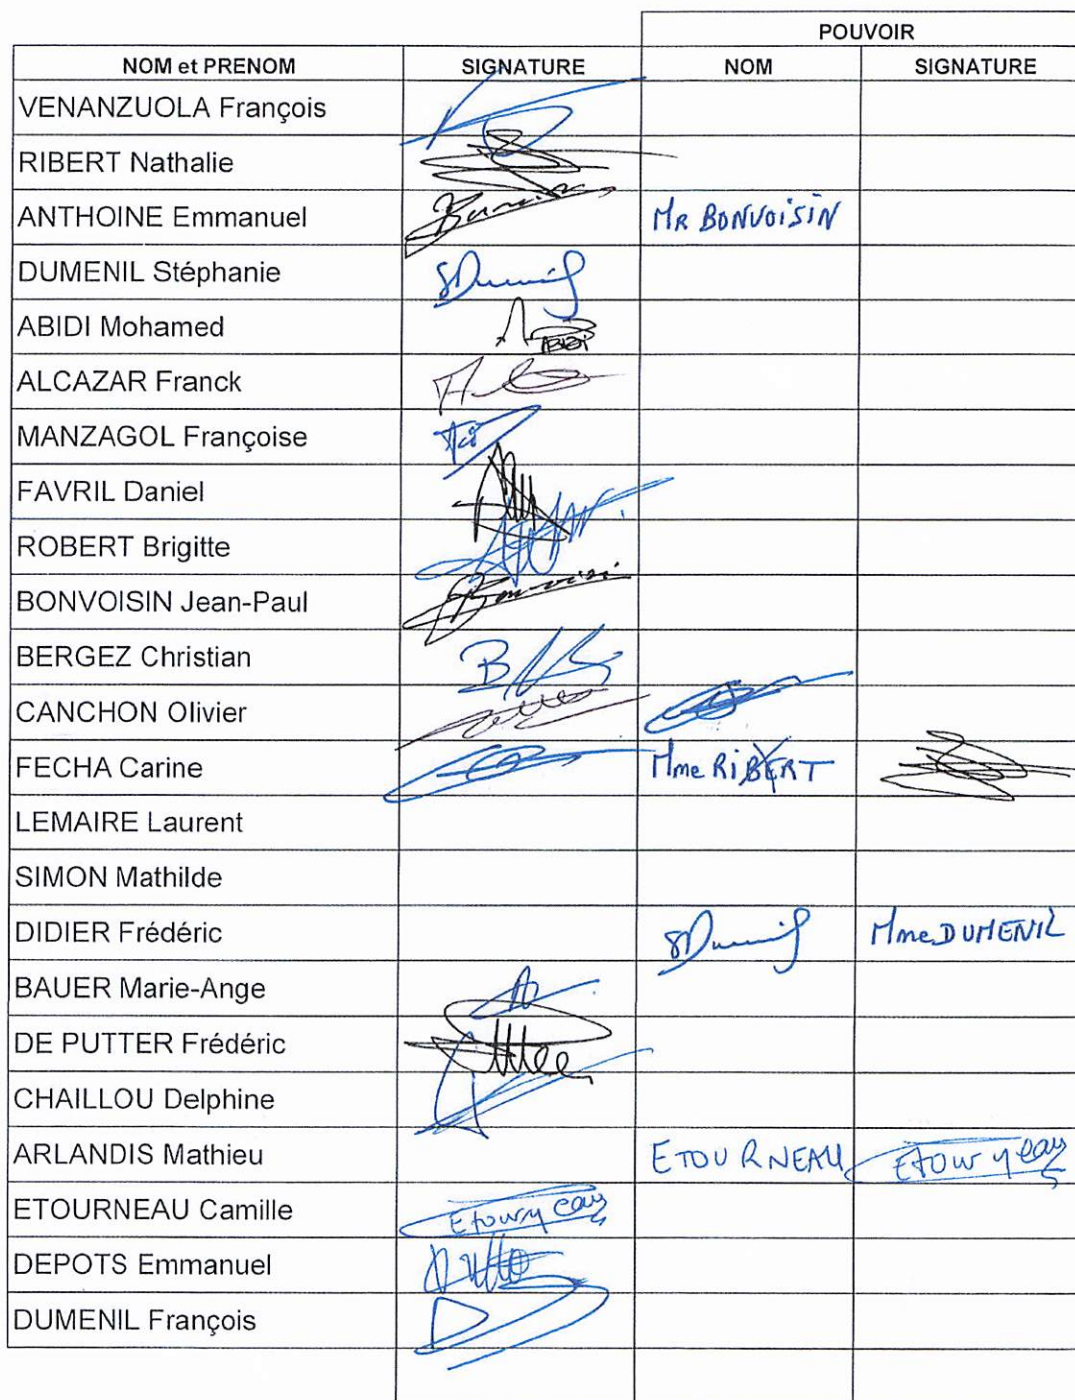 POUVOIR
NOM et PRENOM SIGNATURE NOM SIGNATURE
VENANZUOLA François
RIBERT Nathalie
ANTHOINE Emmanuel MR BONVOISIN
DUMENIL Stéphanie SDumenil
ABIDI Mohamed ABIDI
ALCAZAR Franck
MANZAGOL Françoise
FAVRIL Daniel
ROBERT Brigitte
BONVOISIN Jean-Paul Bonvoisin
BERGEZ Christian
CANCHON Olivier
FECHA Carine Mme RIBERT
LEMAIRE Laurent
SIMON Mathilde
DIDIER Frédéric SDumenil Mme DUMENIL
BAUER Marie-Ange
DE PUTTER Frédéric
CHAILLOU Delphine
ARLANDIS Mathieu ETOURNEAU Etourneau
ETOURNEAU Camille Etourneau
DEPOTS Emmanuel
DUMENIL François